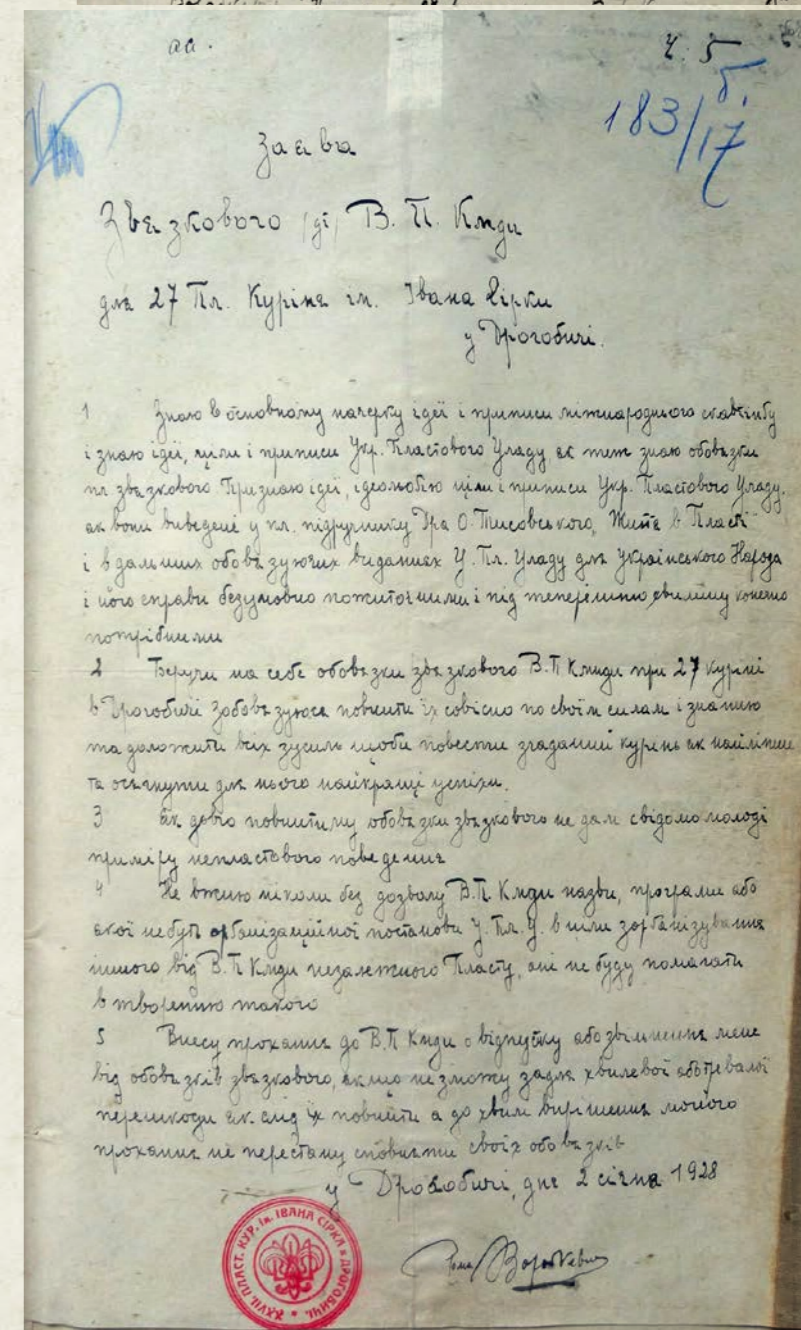 аа.
Ч. 5
б.
183/17
Заява
Звязкового /ді/ В. П. Кмди
для 27 Пл. Куріня ім. Івана Сірки
у Дрогобичі.
1 Знаю в основному начерку ідеї і приписи міжнародного скавтінґу
і знаю ідеї, ціли і приписи Укр. Пластового Уладу, як теж знаю обовязки
пл звязкового Признаю ідеї, ідеольоґію ціли і приписи Укр. Пластового Уладу.
як вони виведені у пл. підручнику Дра О. Тисовського, "Життє в Пласті"
і в дальших обовязуючих виданнях У. Пл. Уладу для Українського Народа
і його справи безумовно пожиточними і під теперішню хвилину конечно
потрібними
2 Беручи на себе обовязки звязкового В. П Кмиди при 27 куріні
в Дрогобичі зобовязуюся повнити їх совісно по своїм силам і знанню
та доложити всіх зусиль щоби повести згаданий курінь як найліпше
та осягнути для нього найкращі успіхи.
3 Як довго повнитиму обовязки звязкового не дам свідомо молоді
приміру непластового поведення
4 Не вжию ніколи без дозволу В. П. Кмди назви, програми або
якої небудь орґанізаційної постанови У. Пл. У. в ціли зорґанізування
іншого від В. П Кмди незалежного Пласту, ані не буду помагати
в творенню такого
5 Внесу прохання до В. П Кмди о відпустку або звільнення мене
від обовязків звязкового, якщо не зможу задля хвилевої або тревалої
перешкоди як слід їх повнити а до хвилі вирішення мойого
прохання не перестану сповняти своїх обовязків
у Дрогобичі, дня 2 січня 1928
XXVII. ПЛАСТ. КУР. ІМ. ІВАНА СІРКА В ДРОГОБИЧІ.